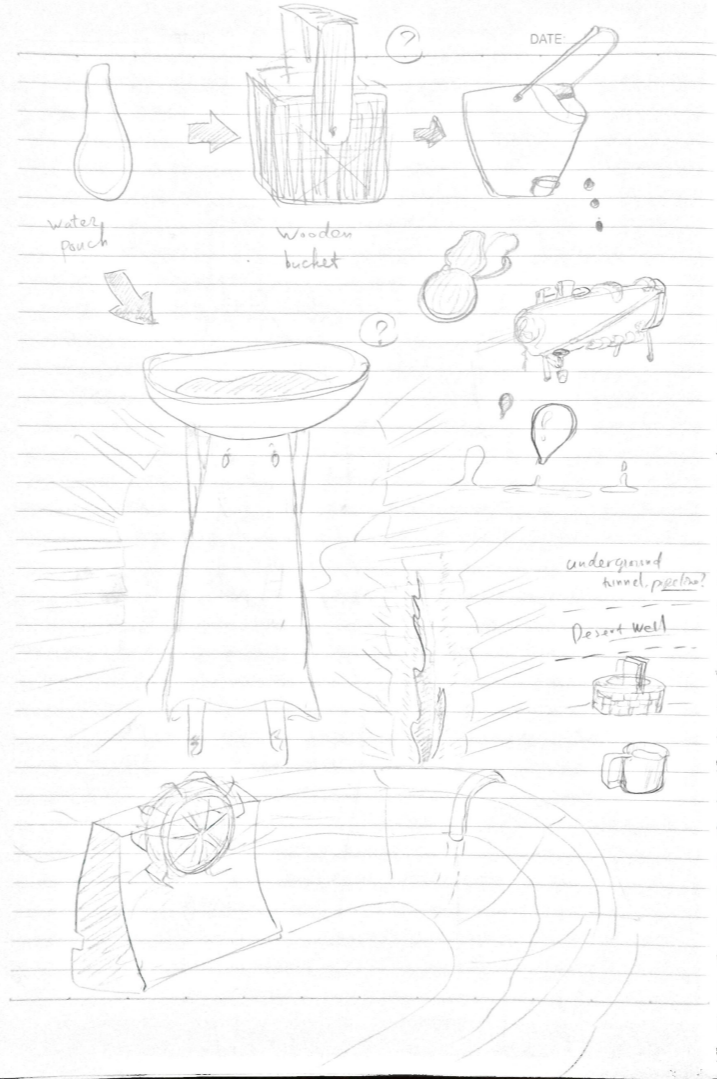 ?
DATE:
water
pouch
Wooden
bucket
?
underground
tunnel, pipeline?
Desert Well